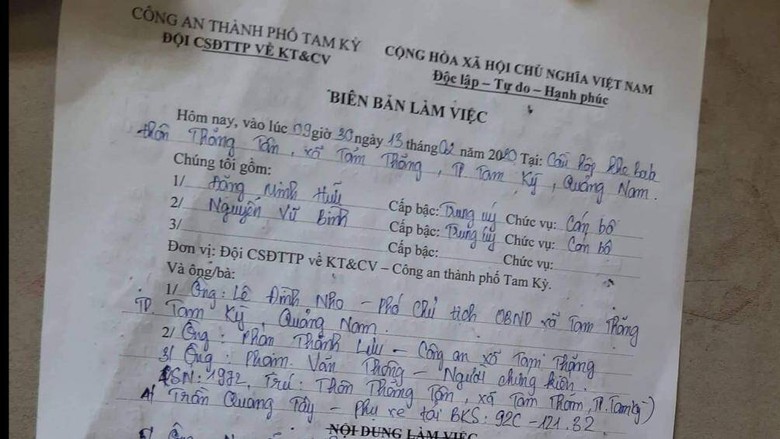 CÔNG AN THÀNH PHỐ TAM KỲ
ĐỘI CSĐTTP VỀ KT&CV
CỘNG HÒA XÃ HỘI CHỦ NGHĨA VIỆT NAM
Độc lập – Tự do – Hạnh phúc
BIÊN BẢN LÀM VIỆC
Hôm nay, vào lúc 09 giờ 30 ngày 13 tháng 02 năm 2020 Tại:
thôn Thăng Tân, xã Tam Thăng, TP Tam Kỳ, Quảng Nam.
Chúng tôi gồm:
1/ Đặng Minh Hiếu Cấp bậc: Trung úy Chức vụ: Cán bộ
2/ Nguyễn Vũ Bình Cấp bậc: Trung úy Chức vụ: Cán bộ
3/ Cấp bậc: Chức vụ:
Đơn vị: Đội CSĐTTP về KT&CV – Công an thành phố Tam Kỳ.
Và ông/bà:
1/ Ông: Lê Đình Nho – Phó chủ tịch UBND xã Tam Thăng
TP Tam Kỳ, Quảng Nam.
2/ Ông: Phan Thanh Lưu – Công an xã Tam Thăng
3/ Ông: Phạm Văn Thống – Người chứng kiến
(SN: 1972, Trú: Thôn Thăng Tân, xã Tam Thăng, TP. Tam Kỳ)
4/ Trần Quang Tây – Phụ xe tải BKS: 92C – 121.32
NỘI DUNG LÀM VIỆC
5/ Ông